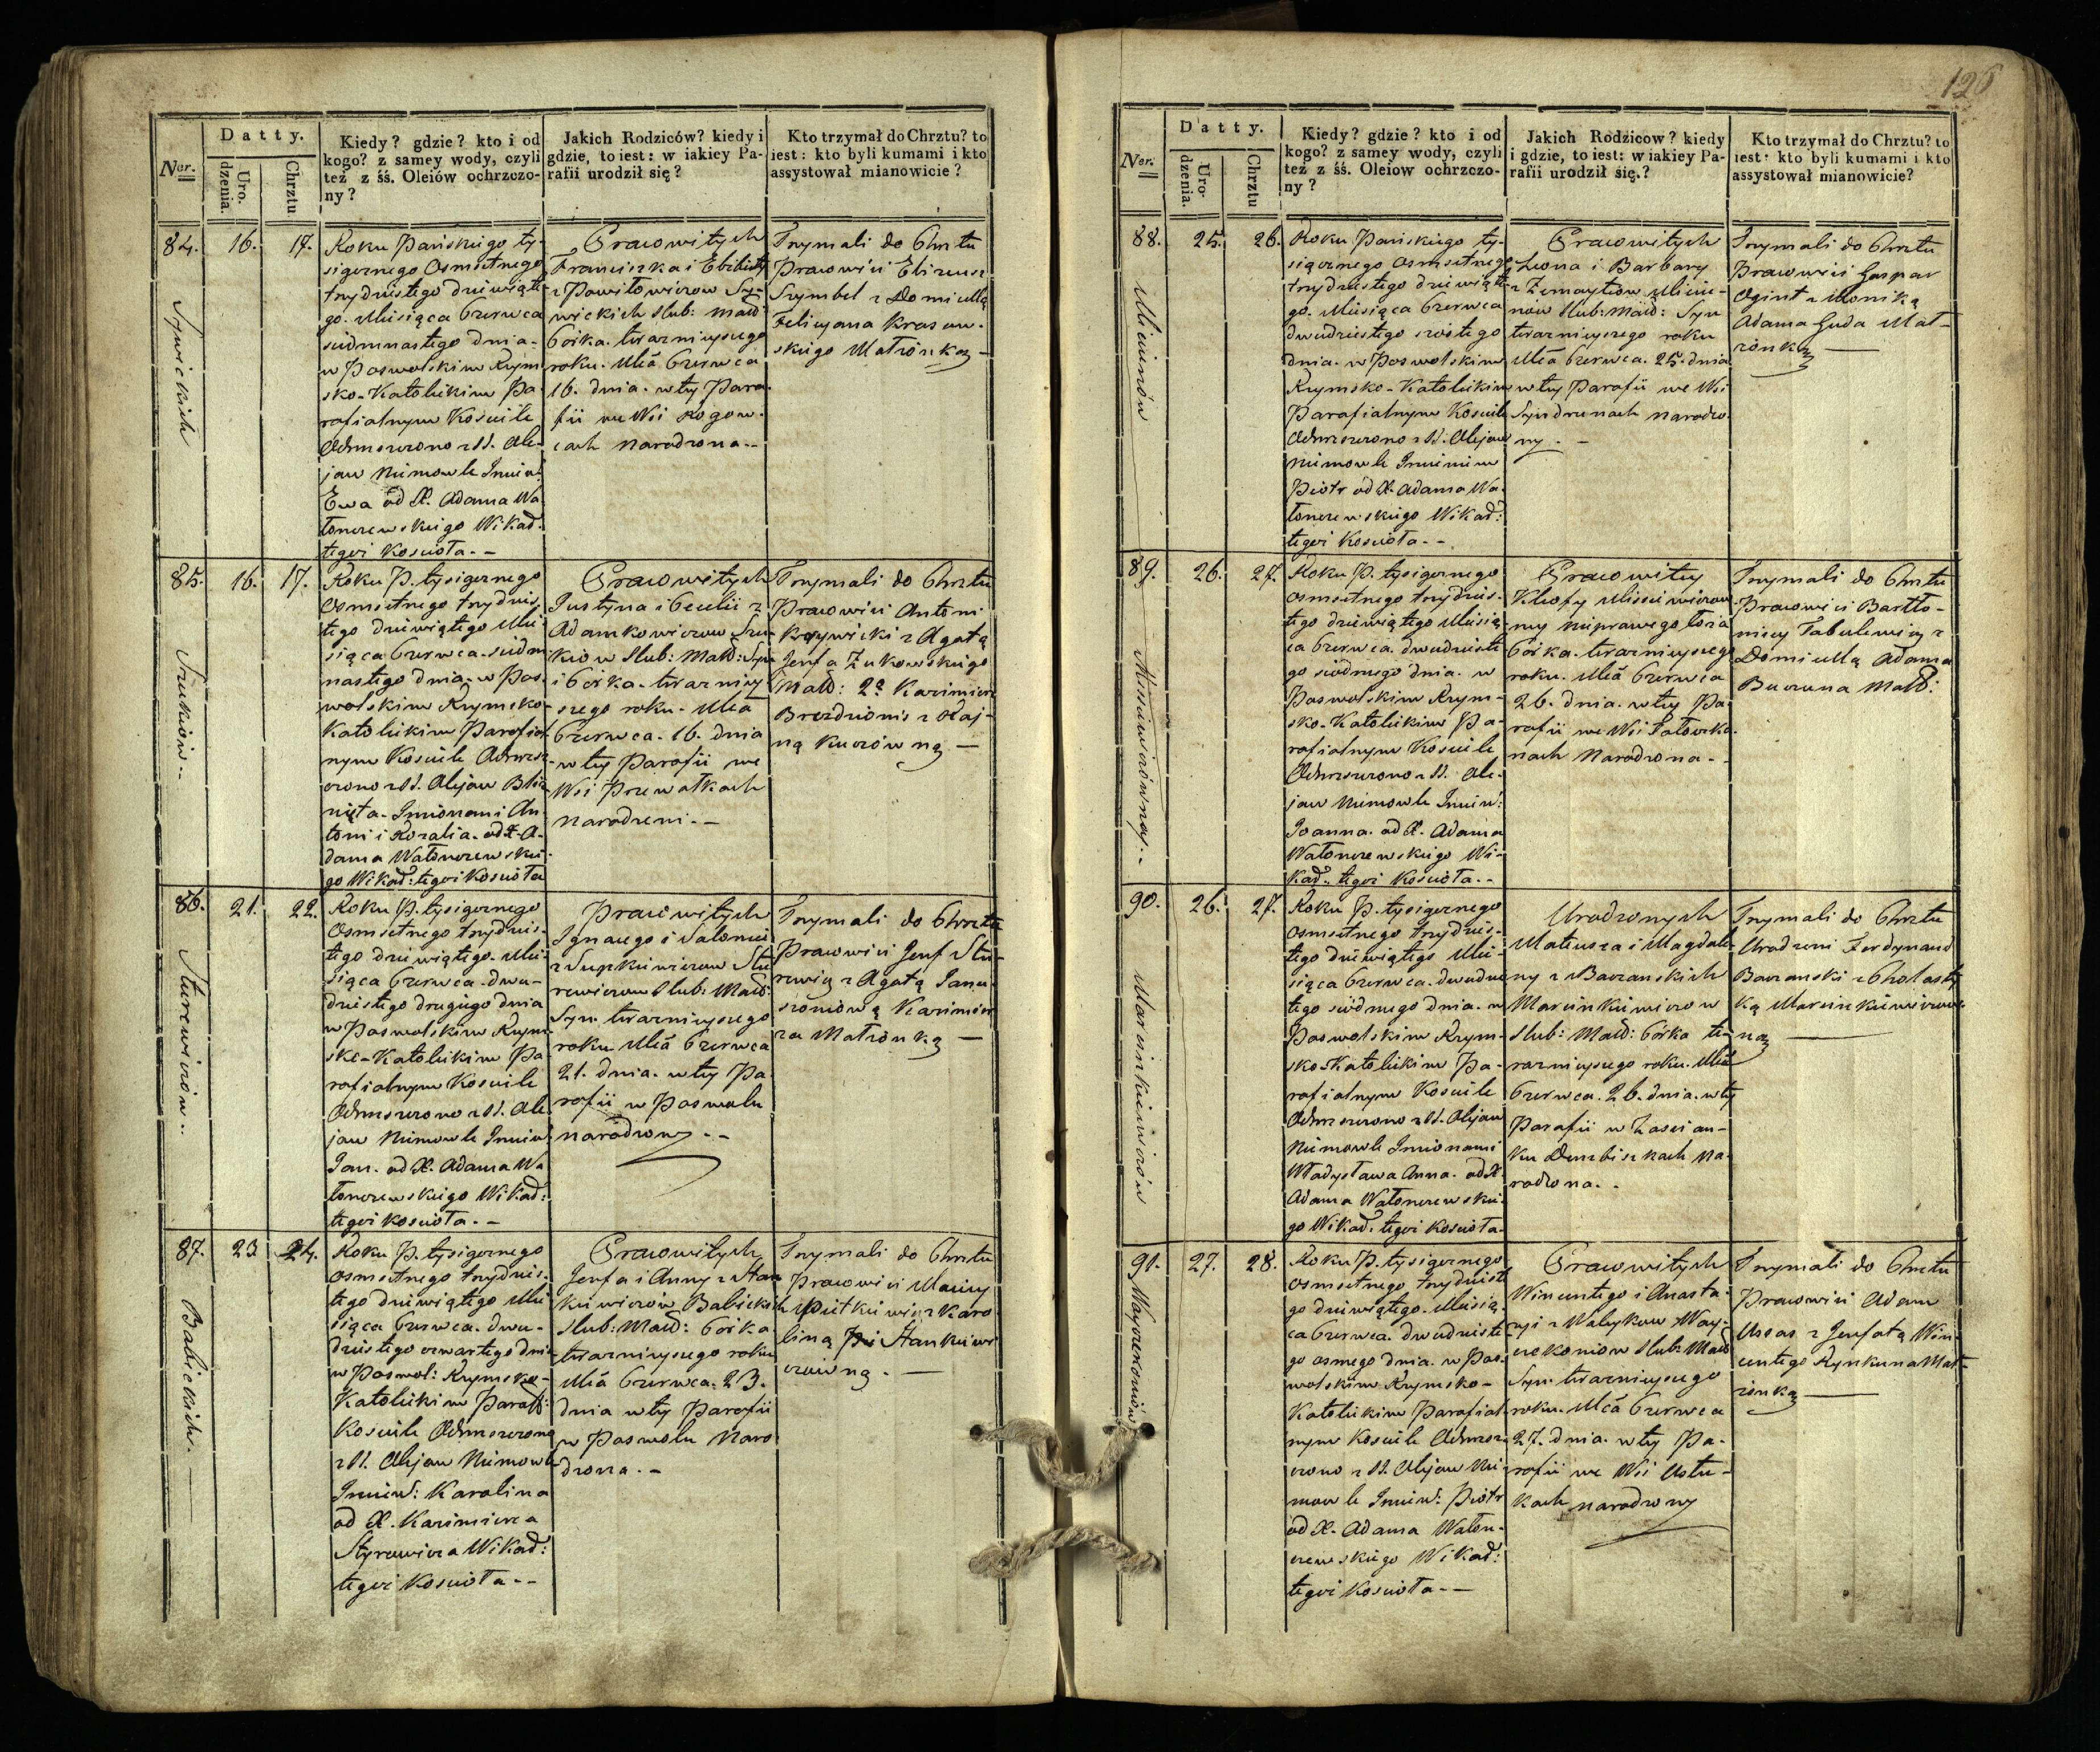 126
Datty.
Ner.
Uro-
dzenia.
Chrztu
Kiedy? gdzie? kto i od
kogo? z samey wody, czyli
też z śś. Oleiów ochrzczo-
ny?
Jakich Rodziców? kiedy i
gdzie, to iest: w iakiey Pa-
rafii urodził się?
Kto trzymał do Chrztu? to
iest: kto byli kumami i kto
assystował mianowicie?
84.
16.
17.
Roku Pańskiego ty-
siącznego Osmsetnego
trzydziestego dziewiąte-
go. Miesiąca Czerwca
siedmnastego dnia-
w Poswolskim Rzym
sko-Katolickim Pa-
rafialnym Kościele
Ochrzczono z SS. Ole-
jaw Niemowle Imien:
Ewa od X. Adama Wa
łonczewskiego Wikar:
tegoż Kościoła.-
Pracowitych
Franciszka i Elżbiety
z Powiłowiczow Sy-
wickich Slub: małż:
Córka. teraznieyszego
roku. Mca Czerwca
16. dnia. w tey Para-
fii we Wsi Rogow-
cach narodzona.-
Trzymali do Chrztu
Pracowici Elizeusz
Szymbel z Domicellą
Felicyana Krasow-
skiego Małżonką-
85.
16.
17.
Szukiow..
Roku P. tysiącznego
Osmsetnego trzydzies-
tego dziewiątego Mie-
siąca Czerwca-siedm
nastego dnia-w Pos-
wolskim Rzymsko-
Katolickim Parafial
nym Kościele Ochrz-
czono z SS. Olejaw Bliź
nięta-Imionami An-
toni i Rozalia-od X. A-
dama Wałonczewskie-
go Wikar: tegoż Kościoła
Pracowitych
Justyna i Cecelii z
Adamkowiczow Szu-
kiow Slub: Małż: Syn
i Córka-terazniey-
szego roku-Mca
Czerwca-16. dnia
-w tey Parafii we
Wsi Przewałkach
narodzeni.-
Trzymali do Chrztu
Pracowici Antoni
Krzywicki z Agatą
Jozefa Żukowskiego
Małż: 2o Kazimierz
Brezdzionis z
86.
21.
22.
Sturewiczów..
Roku P. tysiącznego
Osmsetnego trzydzies-
tego dziewiątego-Mie-
siąca Czerwca-dwu-
dziestego drugiego dnia
w Poswolskim Rzym
sko-Katolickim Pa-
rafialnym Kościele
Ochrzczono z SS. Ole
jaw Niemowle Imien:
Jan. od X. Adama Wa
łonczewskiego Wikar:
tegoż Kościoła.-
Pracowitych
Ignacego i Salomei
Sturewiczow Slub: Małż:
Syn. teraznieyszego
roku Mca Czerwca
21. dnia. w tey Pa-
rafii w Poswolu
narodzony.-
Trzymali do Chrztu
Pracowici Jozef Stu-
rewicz z Agatą Janu-
szoniową Kazimie-
rza Małżonką-
87.
23
24.
Babickich.
Roku P. tysiącznego
Osmsetnego trzydzies-
tego dziewiątego Mie
siąca Czerwca. dwu-
dziestego czwartego dnia
w Poswol: Rzymsko-
Katolickim Paraf:
Kościele Ochrzczono
z SS. Olejaw Niemowle
Imien: Karolina
od X. Kazimierza
Styrawicza Wikar:
tegoż Kościoła.-
Pracowitych
Jozefa i Anny z Stan
kiewiczów Babickich
Slub: Małż: Córka
teraznieyszego roku
Mca Czerwca. 23.
dnia w tey Parafii
w Poswolu Naro
dzona.-
Trzymali do Chrztu
Pracowici Maciey
Pietkiewicz z Karo
liną Stankiewi
czówną.-
Datty.
Ner.
Uro-
dzenia.
Chrztu
Kiedy? gdzie? kto i od
kogo? z samey wody, czyli
też z śś. Oleiow ochrzczo-
ny?
Jakich Rodzicow? kiedy
i gdzie, to iest: w iakiey Pa-
rafii urodził się.?
Kto trzymał do Chrztu? to
iest: kto byli kumami i kto
assystował mianowicie?
88.
25.
26.
Roku Pańskiego ty-
siącznego Osmsetnego
trzydziestego dziewiąte-
go. Miesiąca Czerwca
dwudziestego szóstego
dnia. w Poswolskim
Rzymsko-Katolickim
Parafialnym Kościele
Ochrzczono z SS. Olejaw
Niemowle Imieniem
Piotr od X. Adama Wa-
łonczewskiego Wikar:
tegoż Kościoła.-
Pracowitych
Leona i Barbary
Slub: Małż: Syn
teraznieyszego roku
Mca Czerwca. 25. dnia
w tey Parafii we Wsi
narodzo-
ny.-
Trzymali do Chrztu
Pracowici Gaspar
Ogint z Moniką
Adama Guda Mał-
żonką
89.
26.
27.
Roku P. tysiącznego
Osmsetnego trzydzies-
tego dziewiątego Miesią-
ca Czerwca. dwudzieste
go siódmego dnia. w
Poswolskim Rzym-
sko-Katolickim Pa-
rafialnym Kościele
Ochrzczono z SS. Ole-
jaw Niemowle Imien:
Joanna. od X. Adama
Wałonczewskiego Wi-
kar: tegoż Kościoła.-
Pracowitey
Kleofy
ny nieprawego łoża
Córka. teraznieyszego
roku. Mca Czerwca
26. dnia. w tey Pa-
rafii we Wsi
nach Narodzona-.
Trzymali do Chrztu
Pracowici Bartło-
miey Tabulewicz z
Domicellą Adama
Małż:
90.
26.
27.
Marcinkiewiczów
Roku P. tysiącznego
Osmsetnego trzydzies-
tego dziewiątego Mie-
siąca Czerwca. dwudzies
tego siódmego dnia. w
Poswolskim Rzym-
sko-Katolickim Pa-
rafialnym Kościele
Ochrzczono z SS. Olejaw
Niemowle Imionami
Władysława Anna. od X.
Adama Wałonczewskie-
go Wikar: tegoż Kościoła-
Urodzonych
Mateusza i Magdale-
ny z Barzanskich
Marcinkiewiczow
Slub: Małż: Córka te-
raznieyszego roku. Mca
Czerwca. 26. dnia. w tey
Parafii w Zascian-
ku na-
rodzona..
Trzymali do Chrztu
Urodzeni Ferdynand
Barzanski z Cholasty
ką Marcinkiewiczow-
ną
91.
27.
28.
Roku P. tysiącznego
Osmsetnego trzydzieste
go dziewiątego. Miesią-
ca Czerwca. dwudzieste
go osmego dnia. w Pos-
wolskim Rzymsko-
Katolickim Parafial-
nym Kościele Ochrz-
czono z SS. Olejaw Nie-
mowle Imien: Piotr
od X. Adama Wałon-
czewskiego Wikar:
tegoż Kościoła.-
Pracowitych
Wincentego i Anasta-
zyi z
Slub: Małż:
Syn. teraznieyszego
roku. Mca Czerwca
27. dnia. w tey Pa-
rafii we Wsi Ustu-
kach narodzony
Trzymali do Chrztu
Pracowici Adam
Ussas z Jozefatą Win-
centego Rynkuna Mał-
żonką